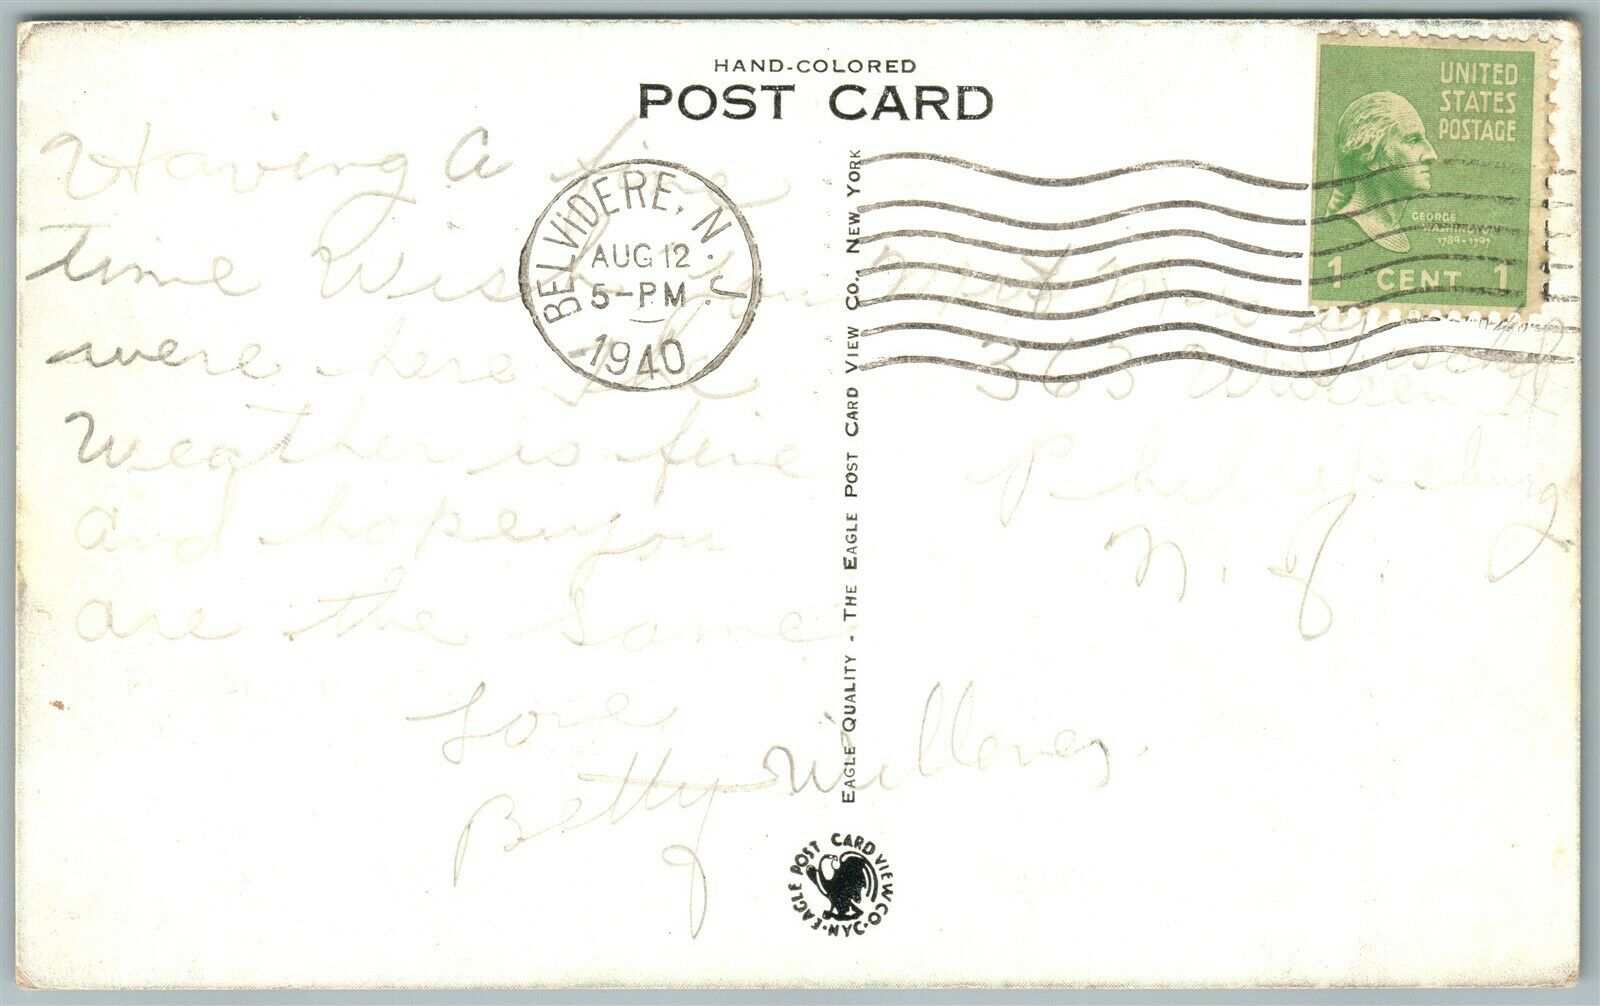 HAND-COLORED
POST CARD
UNITED
STATES
POSTAGE
GEORGE
WASHINGTON
1789-1797
1 CENT 1
BELVIDERE, N.J.
AUG 12
5-PM
1940
Having A fine
time Wish you
were here the
Weather is fine
and hope you
are the same
Love
Betty
363
Philipsburg
N. J.
EAGLE QUALITY - THE EAGLE POST CARD VIEW CO., NEW YORK
EAGLE POST CARD VIEW CO. N.Y.C.